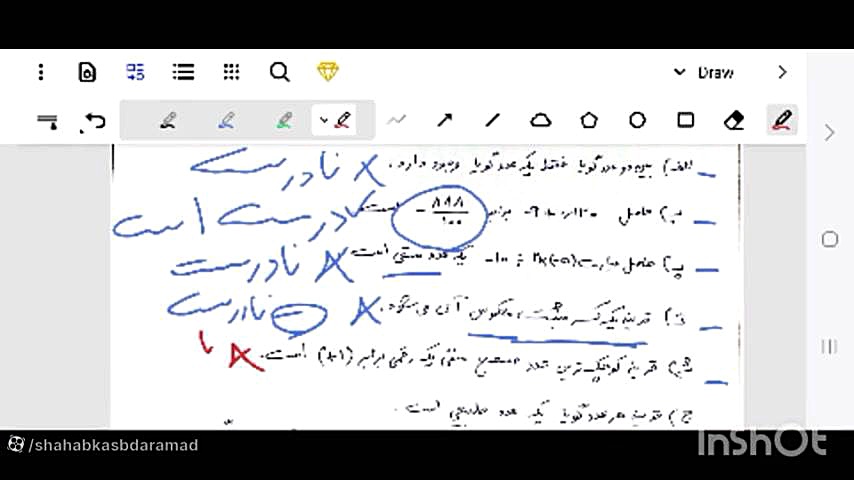 Draw
الف) بین دو عدد گویا فقط یک عدد گویا وجود دارد. نادرست
ب) حاصل برابر -۸۸۸/۱۰۰ است درست است
پ) حاصل عبارت یک عدد منفی است نادرست
ت) قرینه یک کسر مثبت، معکوس آن می‌شود. نادرست
ث) قرینه کوچک‌ترین عدد صحیح منفی یک رقمی برابر (+۱) است.
ج) قرینه هر عدد گویا یک عدد طبیعی است.
InShOt
/shahabkasbdaramad